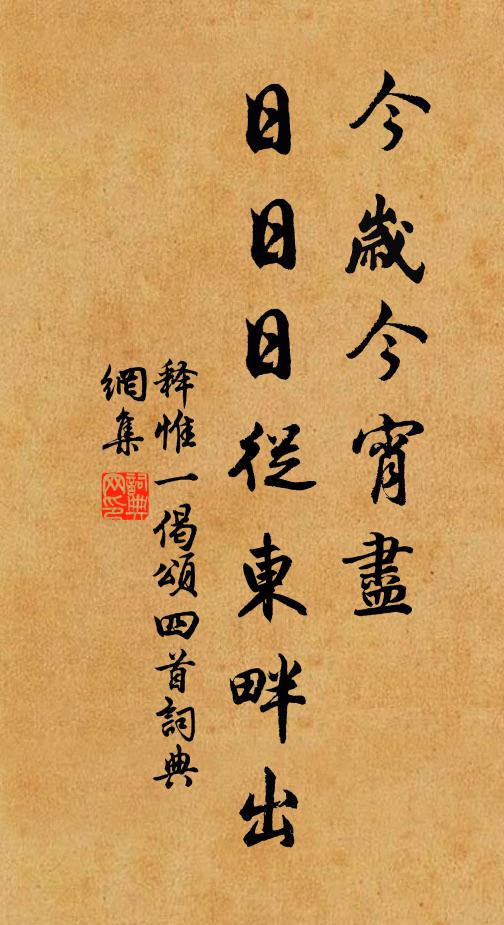 今歲今宵盡
日日日從東畔出
释惟一偈頌四首詞典
網集
詞典
网印